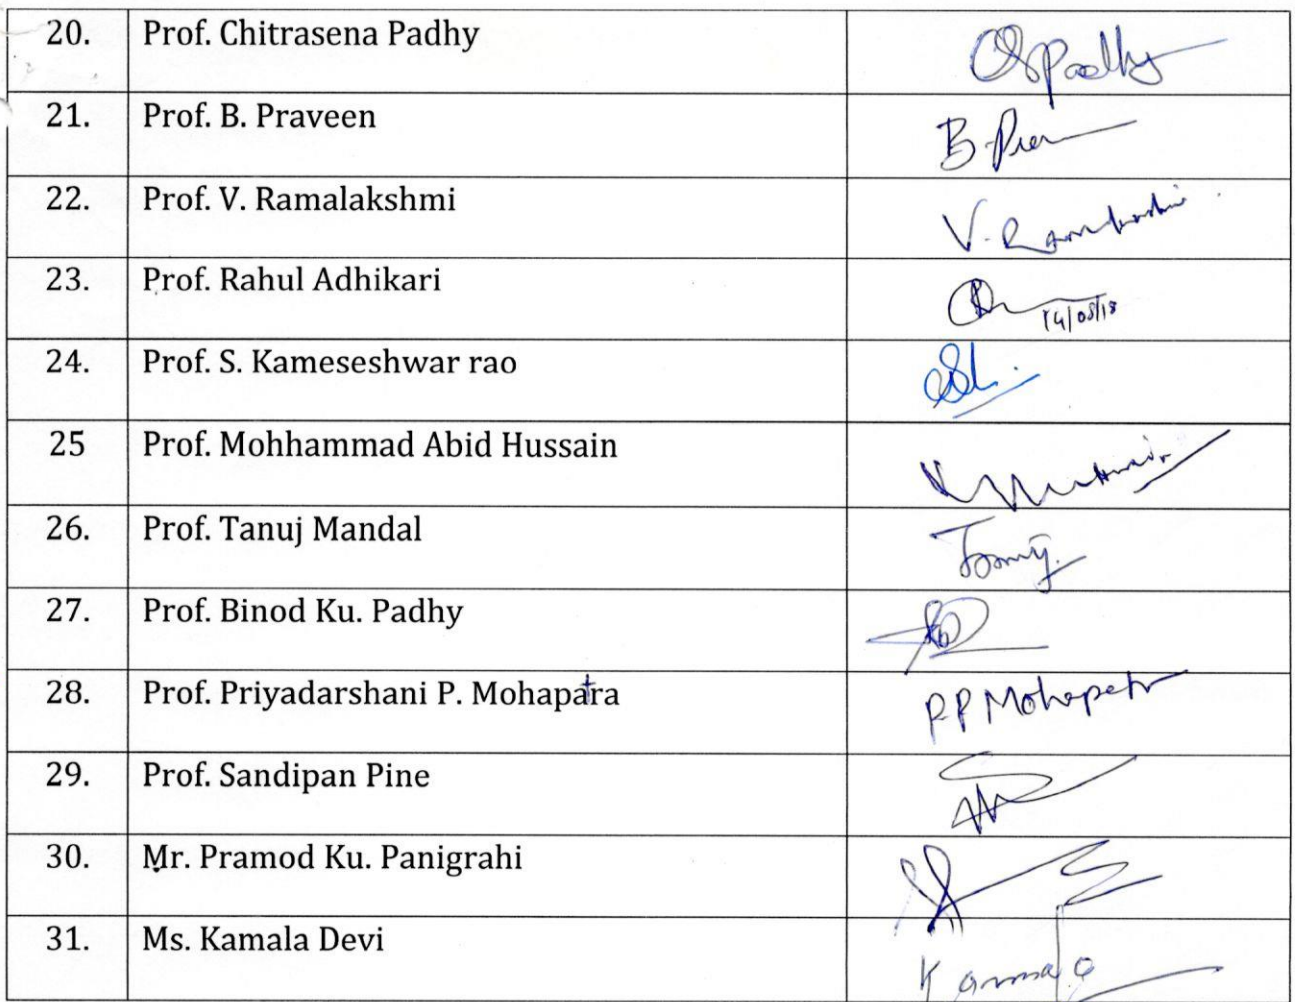 20. Prof. Chitrasena Padhy CSPadhy
21. Prof. B. Praveen B. Pra
22. Prof. V. Ramalakshmi V. Ramalakshmi
23. Prof. Rahul Adhikari 14/08/18
24. Prof. S. Kameseshwar rao
25 Prof. Mohhammad Abid Hussain
26. Prof. Tanuj Mandal Tanuj
27. Prof. Binod Ku. Padhy
28. Prof. Priyadarshani P. Mohapatra P.P Mohapatr
29. Prof. Sandipan Pine
30. Mr. Pramod Ku. Panigrahi
31. Ms. Kamala Devi Kamala